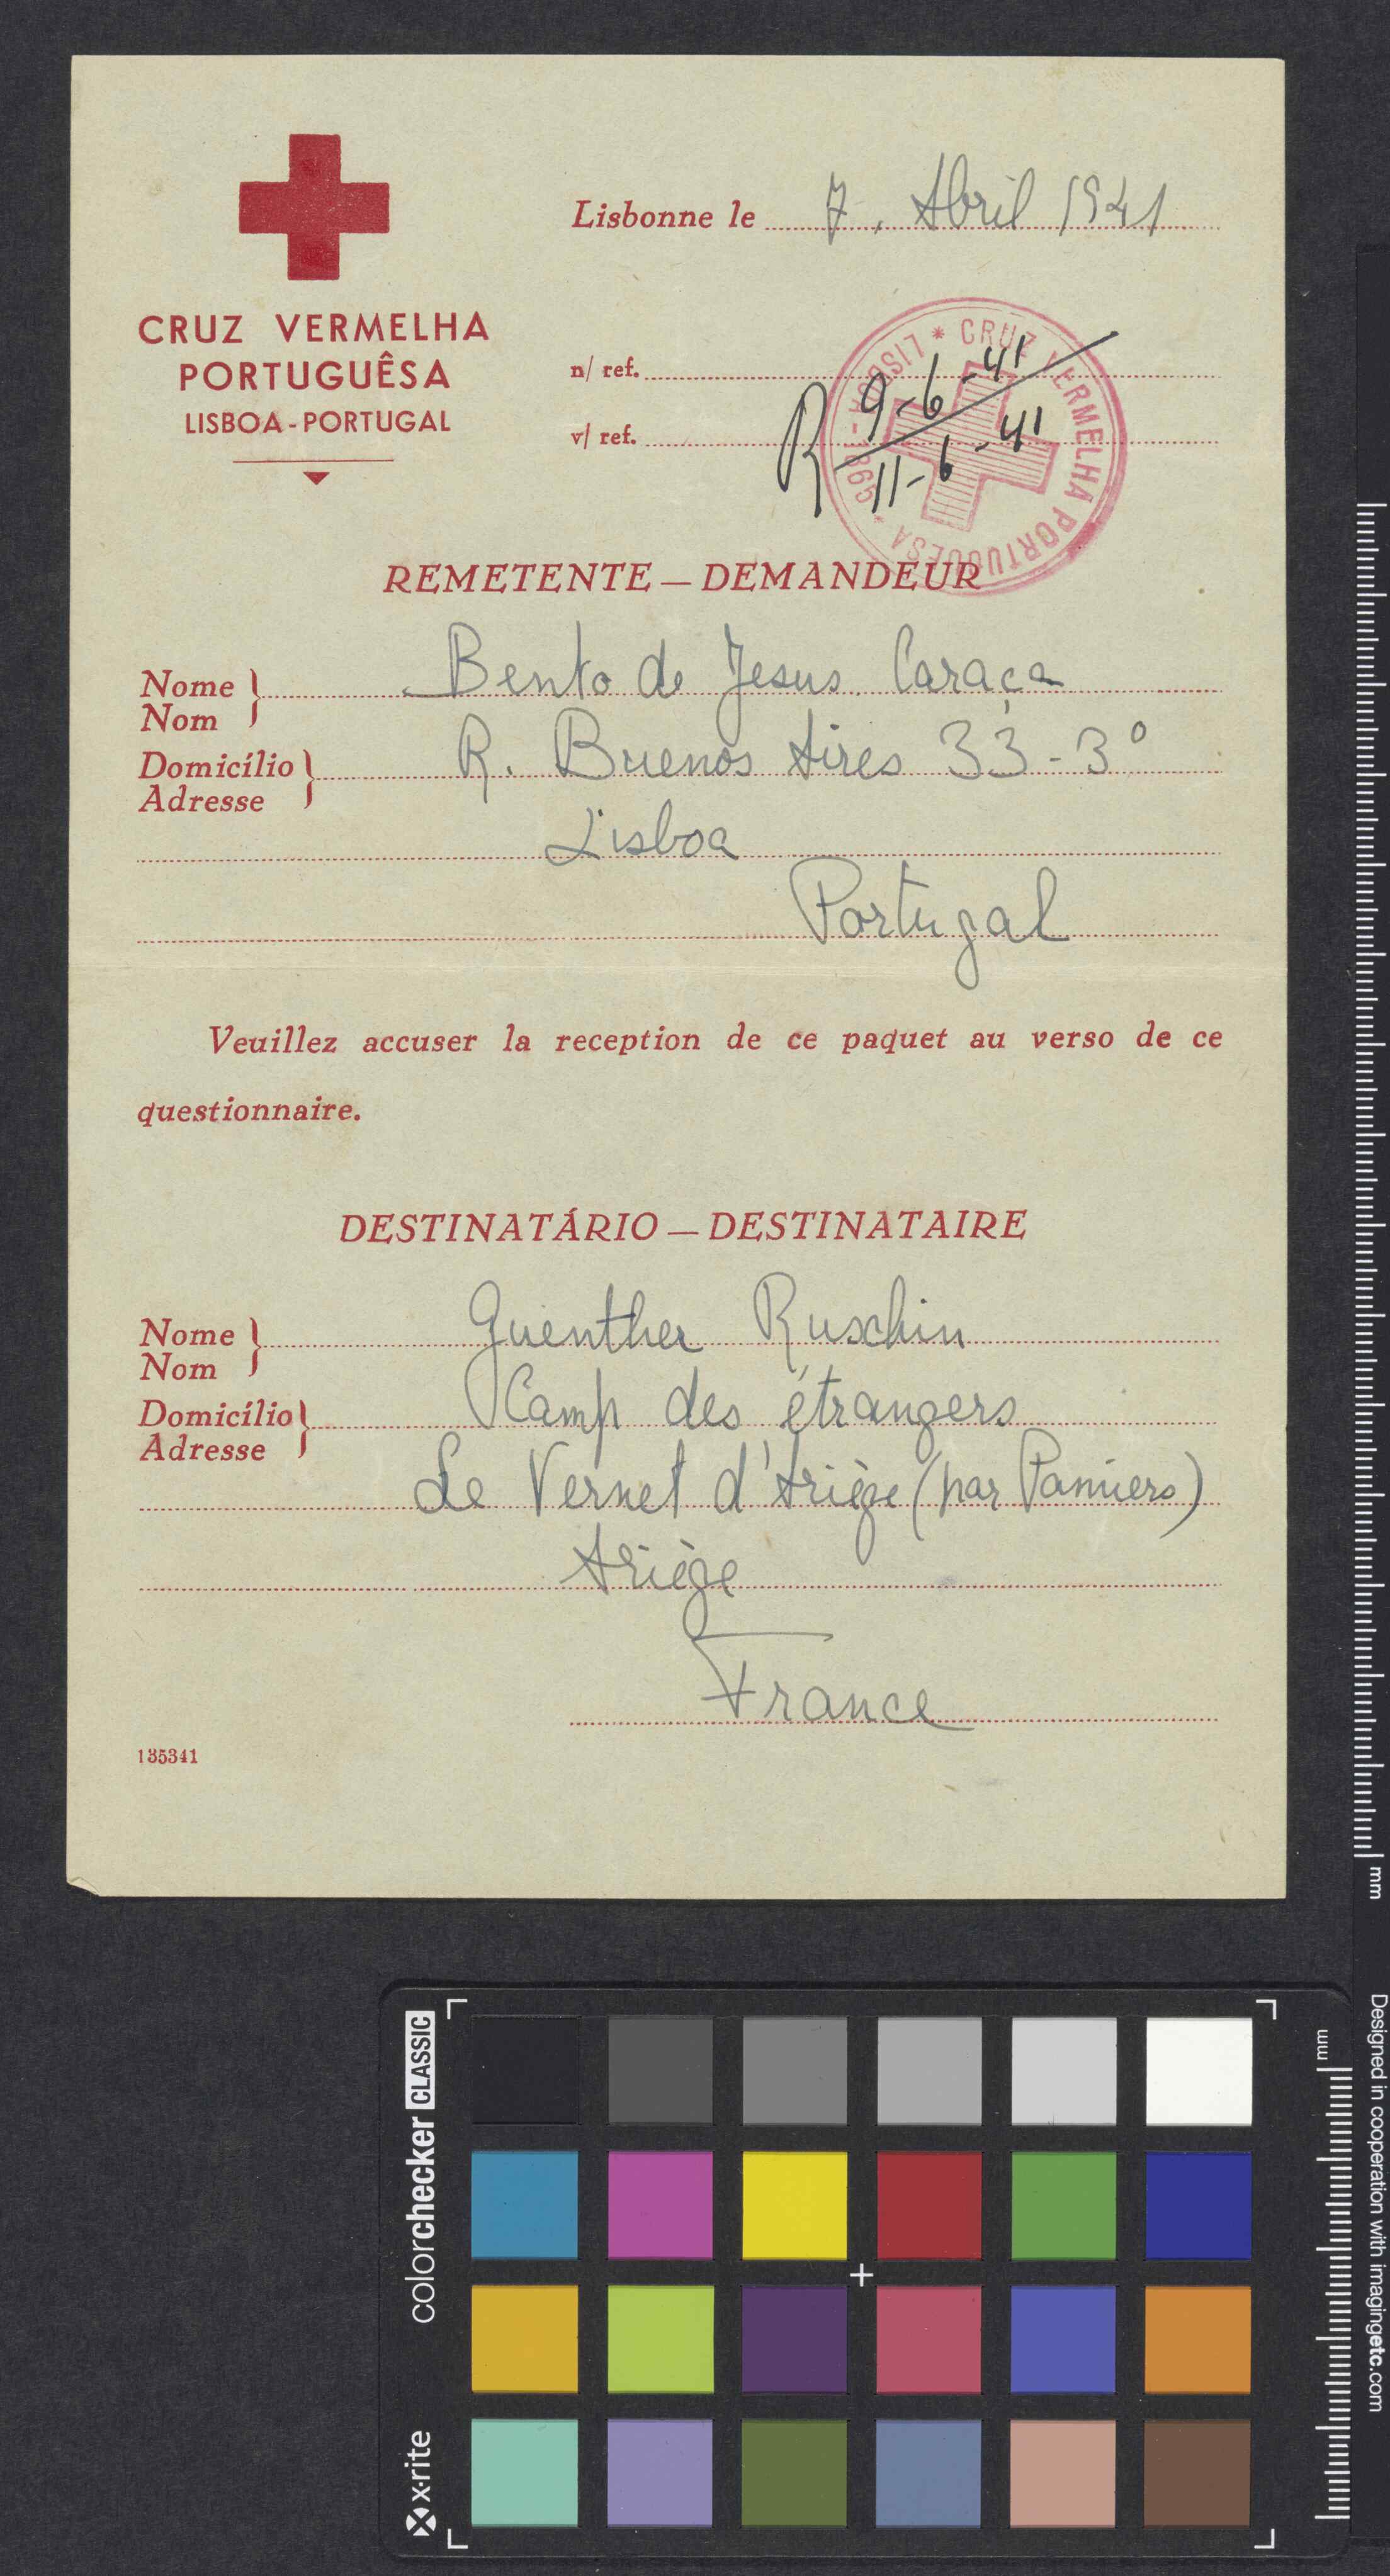 Lisbonne le 7. Abril 1941
CRUZ VERMELHA
PORTUGUÊSA
LISBOA-PORTUGAL
n/ ref.
v/ ref.
R 9-6-41
11-6-41
* CRUZ VERMELHA PORTUGUESA * LISBOA-1865
REMETENTE — DEMANDEUR
Nome Bento de Jesus Caraça
Nom
Domicílio R. Buenos Aires 33-3º
Adresse
Lisboa
Portugal
Veuillez accuser la reception de ce paquet au verso de ce
questionnaire.
DESTINATÁRIO — DESTINATAIRE
Nome Guenther Ruschin
Nom
Domicílio Camp des étrangers
Adresse
Le Vernet d'Ariège (par Pamiers)
Ariège
France
135341
mm
Designed in cooperation with imagingetc.com
mm
x-rite colorchecker CLASSIC